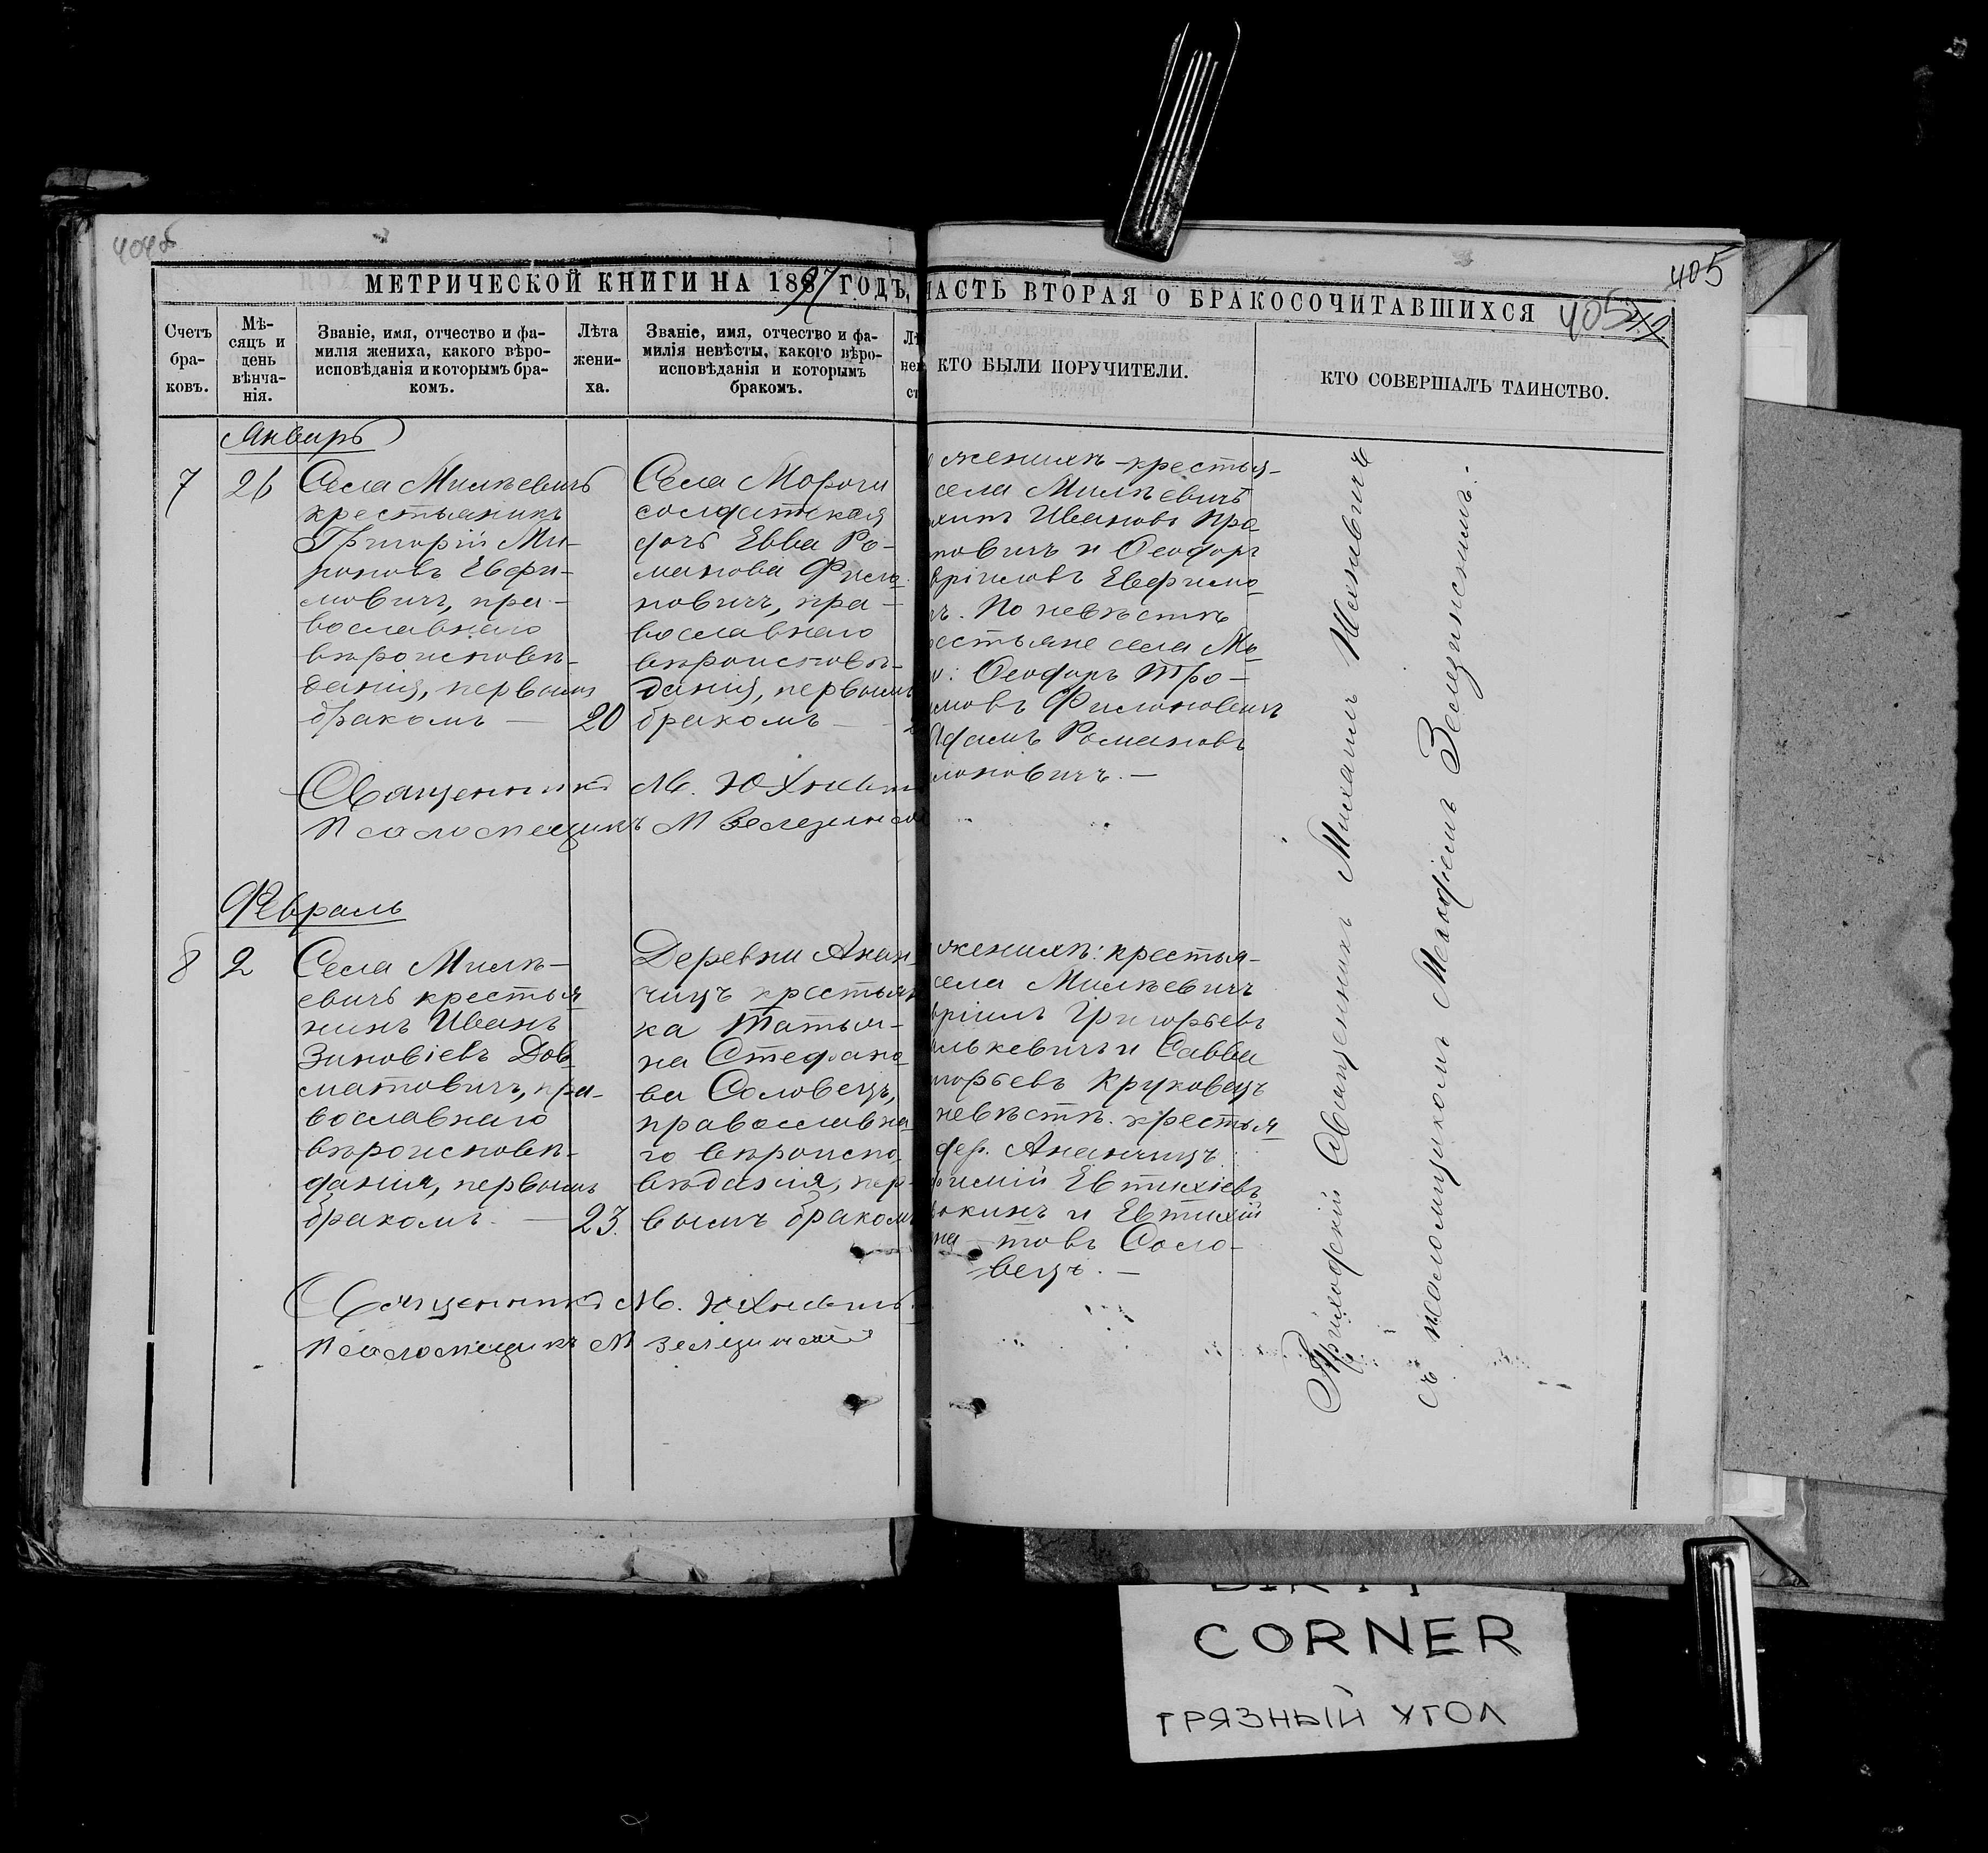 404об
405
МЕТРИЧЕСКОЙ КНИГИ НА 1897 ГОДЪ, ЧАСТЬ ВТОРАЯ О БРАКОСОЧИТАВШИХСЯ
405
Счетъ бра-ковъ.
Мѣ-сяцъ и день вѣнча-нія.
Званіе, имя, отчество и фа-
милія жениха, какого вѣро-
исповѣданія и которымъ бра-
комъ.
Лѣта жени-ха.
Званіе, имя, отчество и фа-
милія невѣсты, какого вѣро-
исповѣданія и которымъ
бракомъ.
КТО БЫЛИ ПОРУЧИТЕЛИ.
КТО СОВЕРШАЛЪ ТАИНСТВО.
Январь
7
26
Села Милѣевичъ
крестьянинъ
Григорій Ми-
роновъ Евфи-
мовичъ, пра-
вославнаго
вѣроисповѣ-
данія, первымъ
бракомъ —
20
Села Морочи
солдатская
дочь Евва Ро-
манова Фило-
новичъ, пра-
вославнаго
вѣроисповѣ-
данія, первымъ
бракомъ —
женихѣ крестья-
села Милѣевичъ
Ивановъ Про-
повичъ и Ѳеодоръ
вріиловъ Евфимо-
чъ. По невѣстѣ
рестьяне села Мо-
и: Ѳеодоръ Тро-
имовъ Филоновичъ
Адамъ Романовъ
лоновичъ. —
Священникъ М. Юхневич
Псаломщикъ М Зелезинск
Февраль
8
2
Села Милѣ-
евичъ крестья
нинъ Иванъ
Зиновіевъ Дов-
матовичъ, пра-
вославнаго
вѣроисповѣ-
данія, первымъ
бракомъ. —
23.
Деревни Анан-
чицъ крестьян
ка Татья-
на Стефано-
ва Соловецъ,
православна-
го вѣроиспо-
вѣданія, пер-
вымъ бракомъ
женихѣ: крестья-
села Милѣевичъ
вріилъ Григорьевъ
лькевичъ и Савва
игорьевъ Круковецъ
невѣстѣ: крестья
дер. Ананчицъ:
фимій Евтихіевъ
и Евтихій
товъ Соло-
вецъ. —
Священникъ М. Юхневичъ.
Псаломщикъ М Зелезинскій
Приходскій Священникъ Михаилъ Юхневичъ
съ псаломщикомъ Зелезинскимъ.
CORNER
ГРЯЗНЫЙ УГОЛ